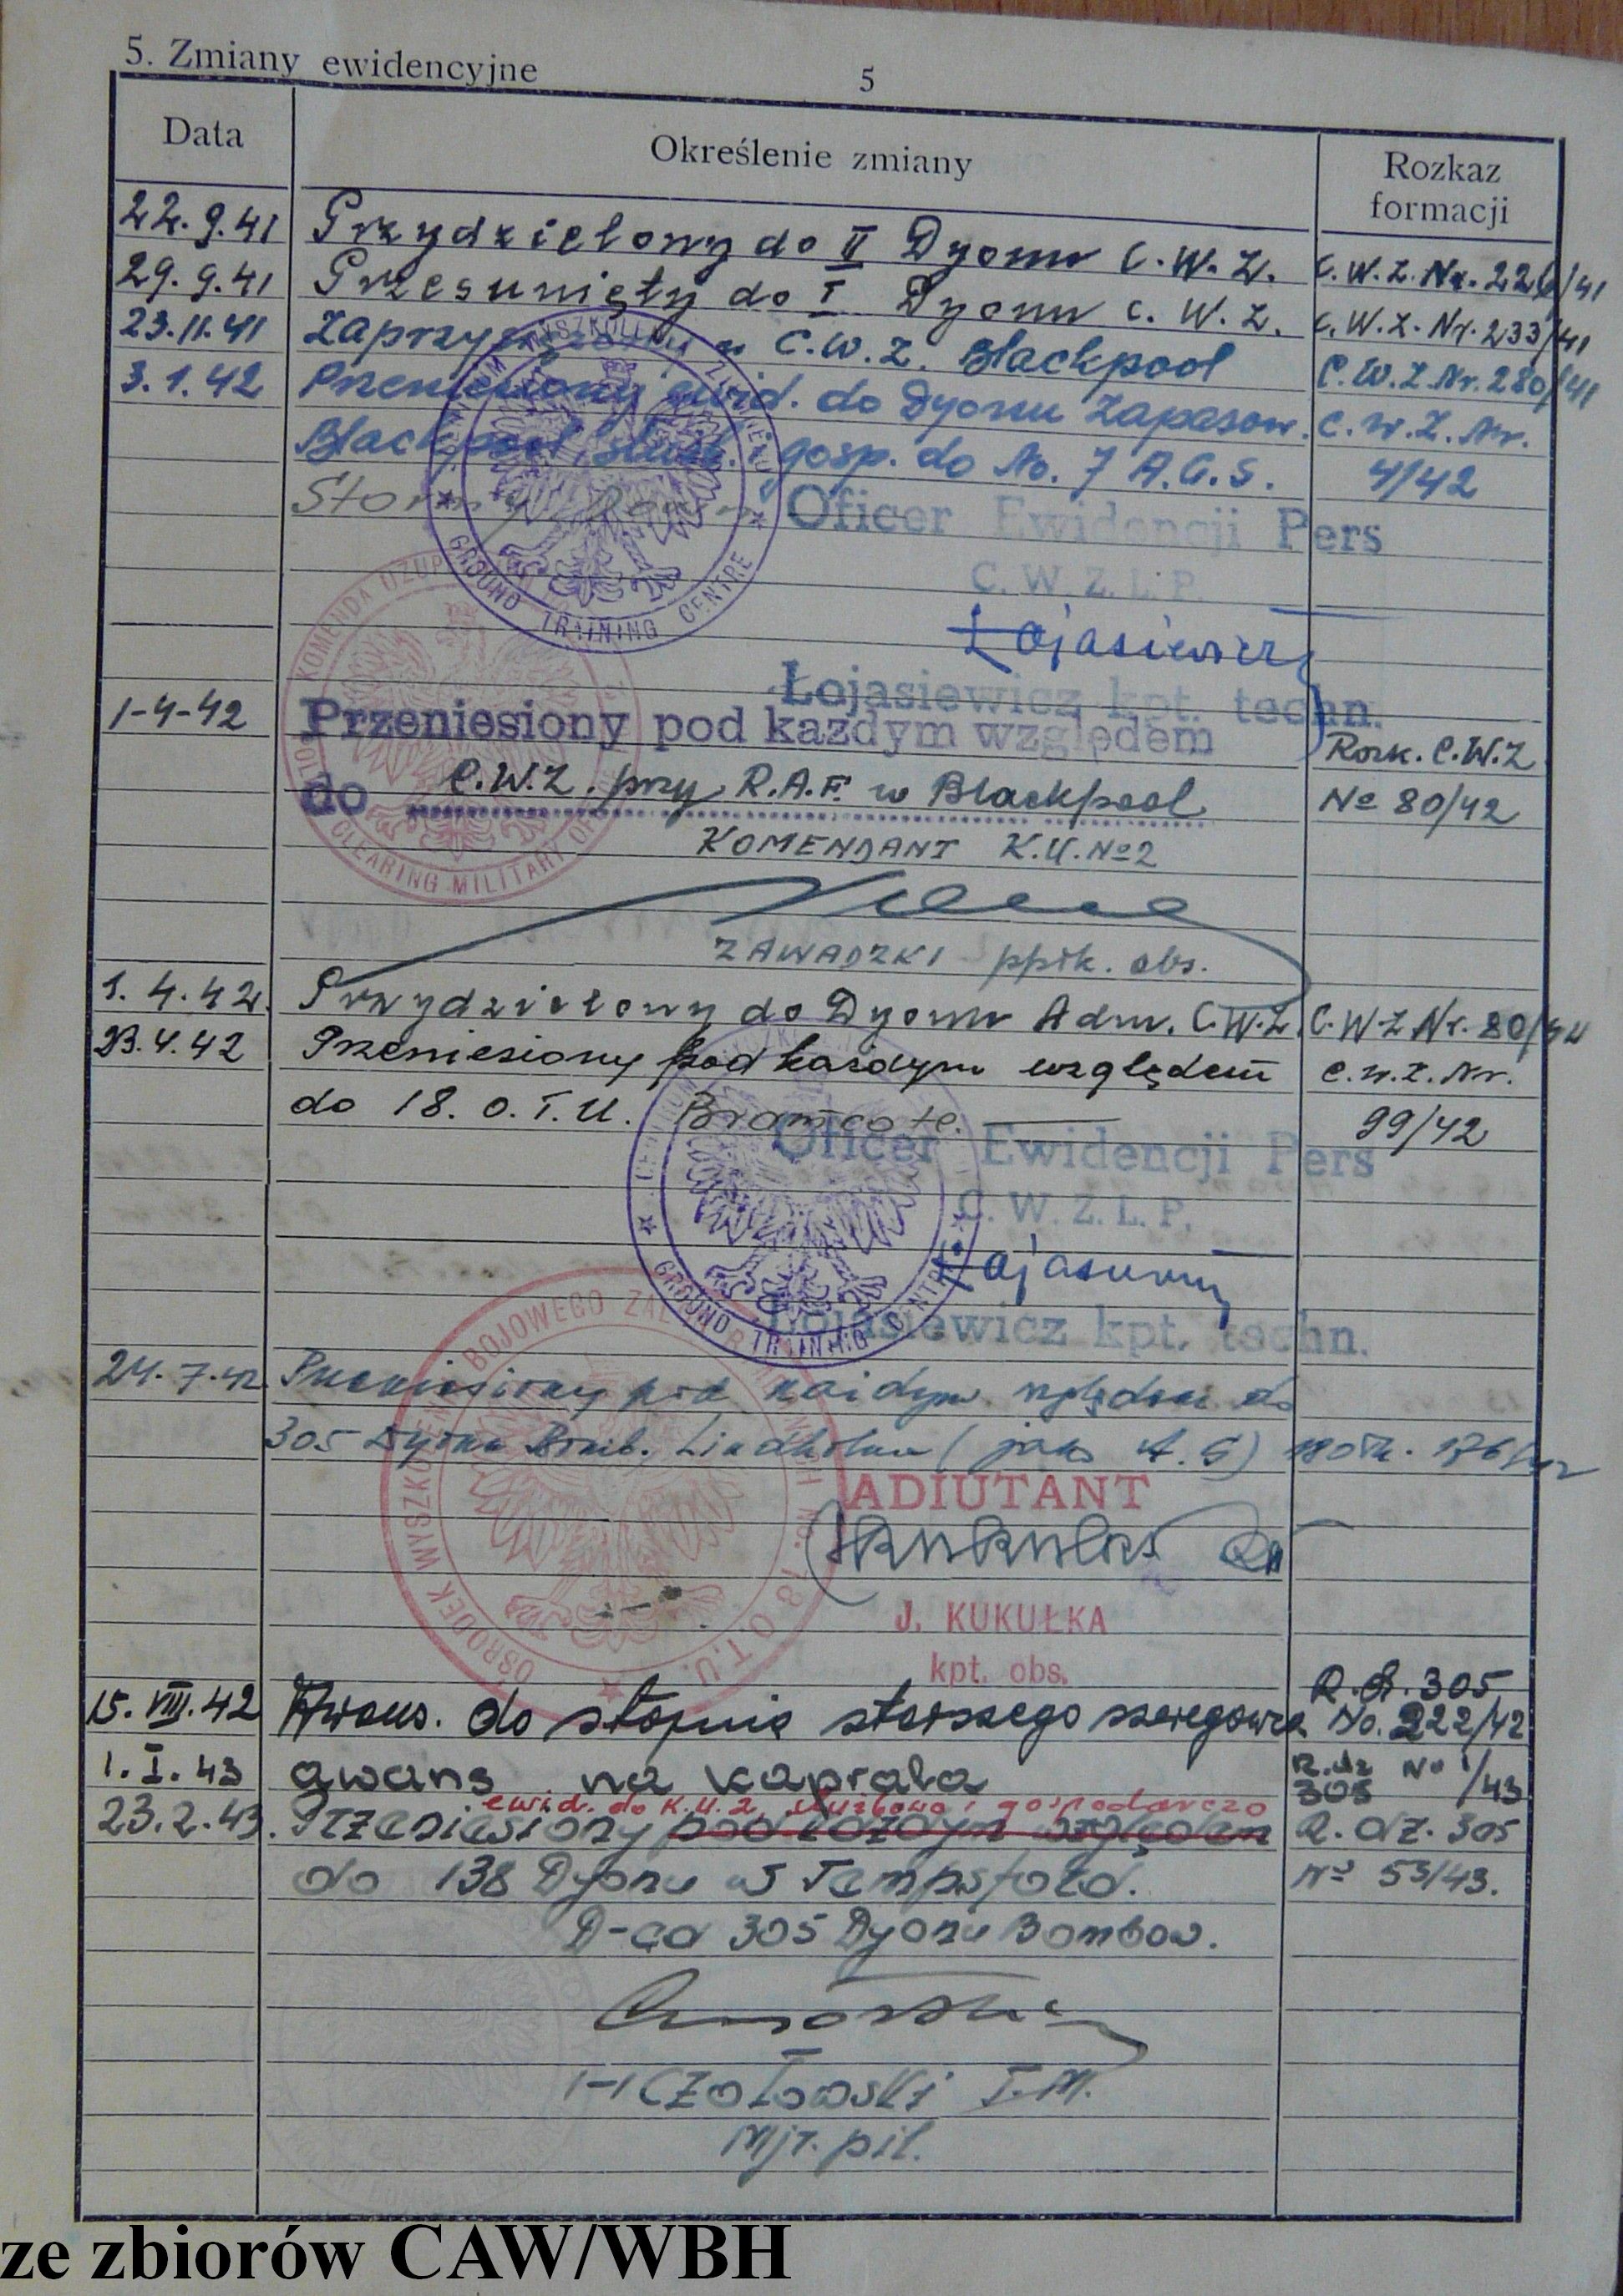 5. Zmiany ewidencyjne
5
Data
Określenie zmiany
Rozkaz formacji
22.9.41 Przydzielony do II Dyonu C.W.Z. C.W.Z. Nr. 226/41
29.9.41 Przesunięty do I Dyonu C.W.Z. C.W.Z. Nr. 233/41
23.11.41 Zaprzysiężony w C.W.Z. Blackpool C.W.Z. Nr. 280/41
3.1.42 Przeniesiony ewid. do Dyonu Zapasow. C.W.Z. Nr.
Blackpool, służb. i gosp. do No. 7 A.G.S. 4/42
Stormy Down
Oficer Ewidencji Pers
C. W. Z. L. P.
Łojasiewicz
Łojasiewicz kpt. techn.
GROUND TRAINING CENTRE
KOMENDA UZUP
CLEARING MILITARY
1-4-42 Przeniesiony pod każdym względem Rozk. C.W.Z
do C.W.Z. przy R.A.F. w Blackpool No 80/42
KOMENDANT K.U. No 2
ZAWADZKI ppłk. obs.
1.4.42. Przydzielony do Dyonu Adm. C.W.Z. C.W.Z Nr. 80/42
23.4.42 Przeniesiony pod każdym względem C.W.Z. Nr.
do 18. O.T.U. Bramcote. 99/42
Oficer Ewidencji Pers
C. W. Z. L. P.
Łojasiewicz
Łojasiewicz kpt. techn.
GROUND TRAINING CENTRE
24.7.42 Przeniesiony pod każdym względem do
305 Dyonu Bomb. Lindholme (jako A.G) 176/42
OŚRODEK WYSZKOLENIA BOJOWEGO ZAŁÓG 18 O.T.U.
ADIUTANT
J. KUKUŁKA
kpt. obs.
15.VIII.42 Awans. do stopnia starszego szeregowca R.d. 305 No. 222/42
1.I.43 awans na kaprala R.dz No 1/43 305
ewid. do K.U.2, służbowo i gospodarczo
23.2.43. Przeniesiony pod każdym względem R. dz. 305
do 138 Dyonu w Tempsford. No 53/43.
D-ca 305 Dyonu Bombow.
CZOŁOWSKI T.M.
Mjr. pil.
ze zbiorów CAW/WBH